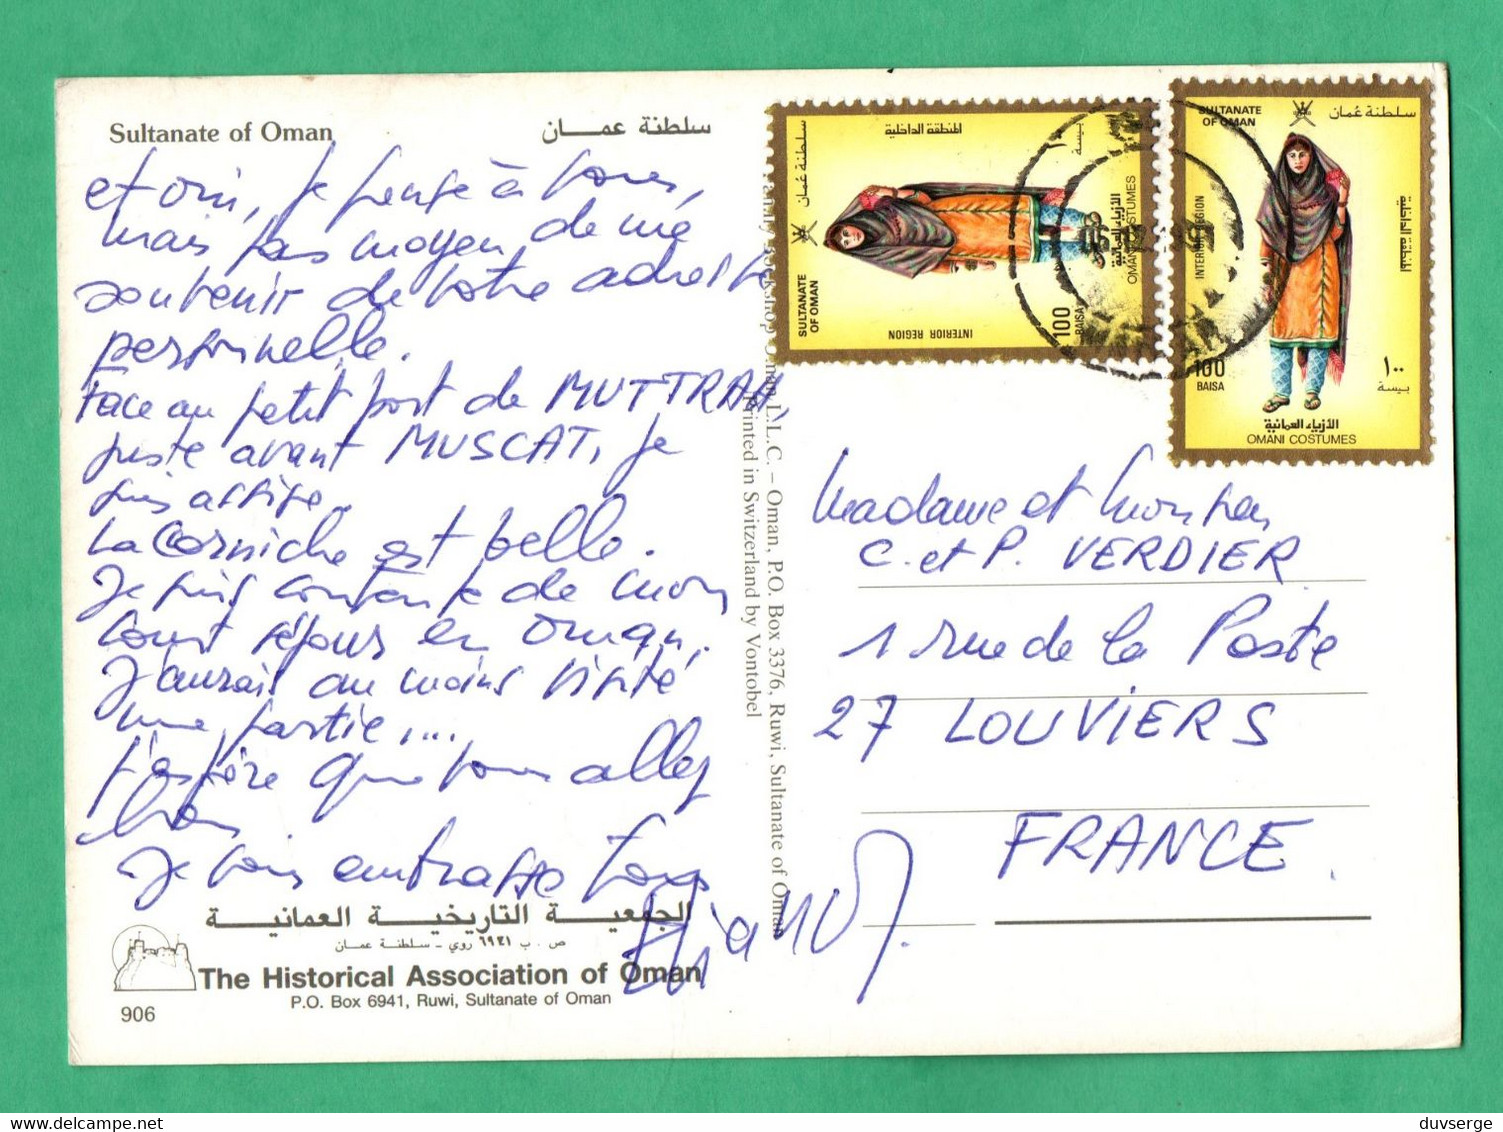 Sultanate of Oman
سلطنة عمـــان
et oui, je pense à vous,
mais pas moyen de me
souvenir de votre adresse
personnelle.
Face au petit port de MUTTRAH,
juste avant MUSCAT, je
suis assise.
La Corniche est belle.
Je suis contente de mon
court séjour en Oman.
J'aurais au moins visité
une partie....
J'espère que vous allez
bien.
Je vous embrasse tous
الجمعيـــة التاريخيـــة العمانيـــة
ص . ب ٦٩٤١ روي - سلطنة عمان
The Historical Association of Oman
P.O. Box 6941, Ruwi, Sultanate of Oman
906
Oman L.L.C. – Oman, P.O. Box 3376, Ruwi, Sultanate of Oman
Printed in Switzerland by Vontobel
سلطنة عمان
SULTANATE
OF OMAN
المنطقة الداخلية
INTERIOR REGION
100
BAISA
بيسة
الأزياء العمانية
OMANI COSTUMES
SULTANATE
OF OMAN
سلطنة عُمان
INTERIOR REGION
المنطقة الداخلية
100
BAISA
١٠٠
بيسة
الأزياء العمانية
OMANI COSTUMES
Madame et Monsieur
C. et P. VERDIER
1 rue de la Poste
27 LOUVIERS
FRANCE.
duvserge